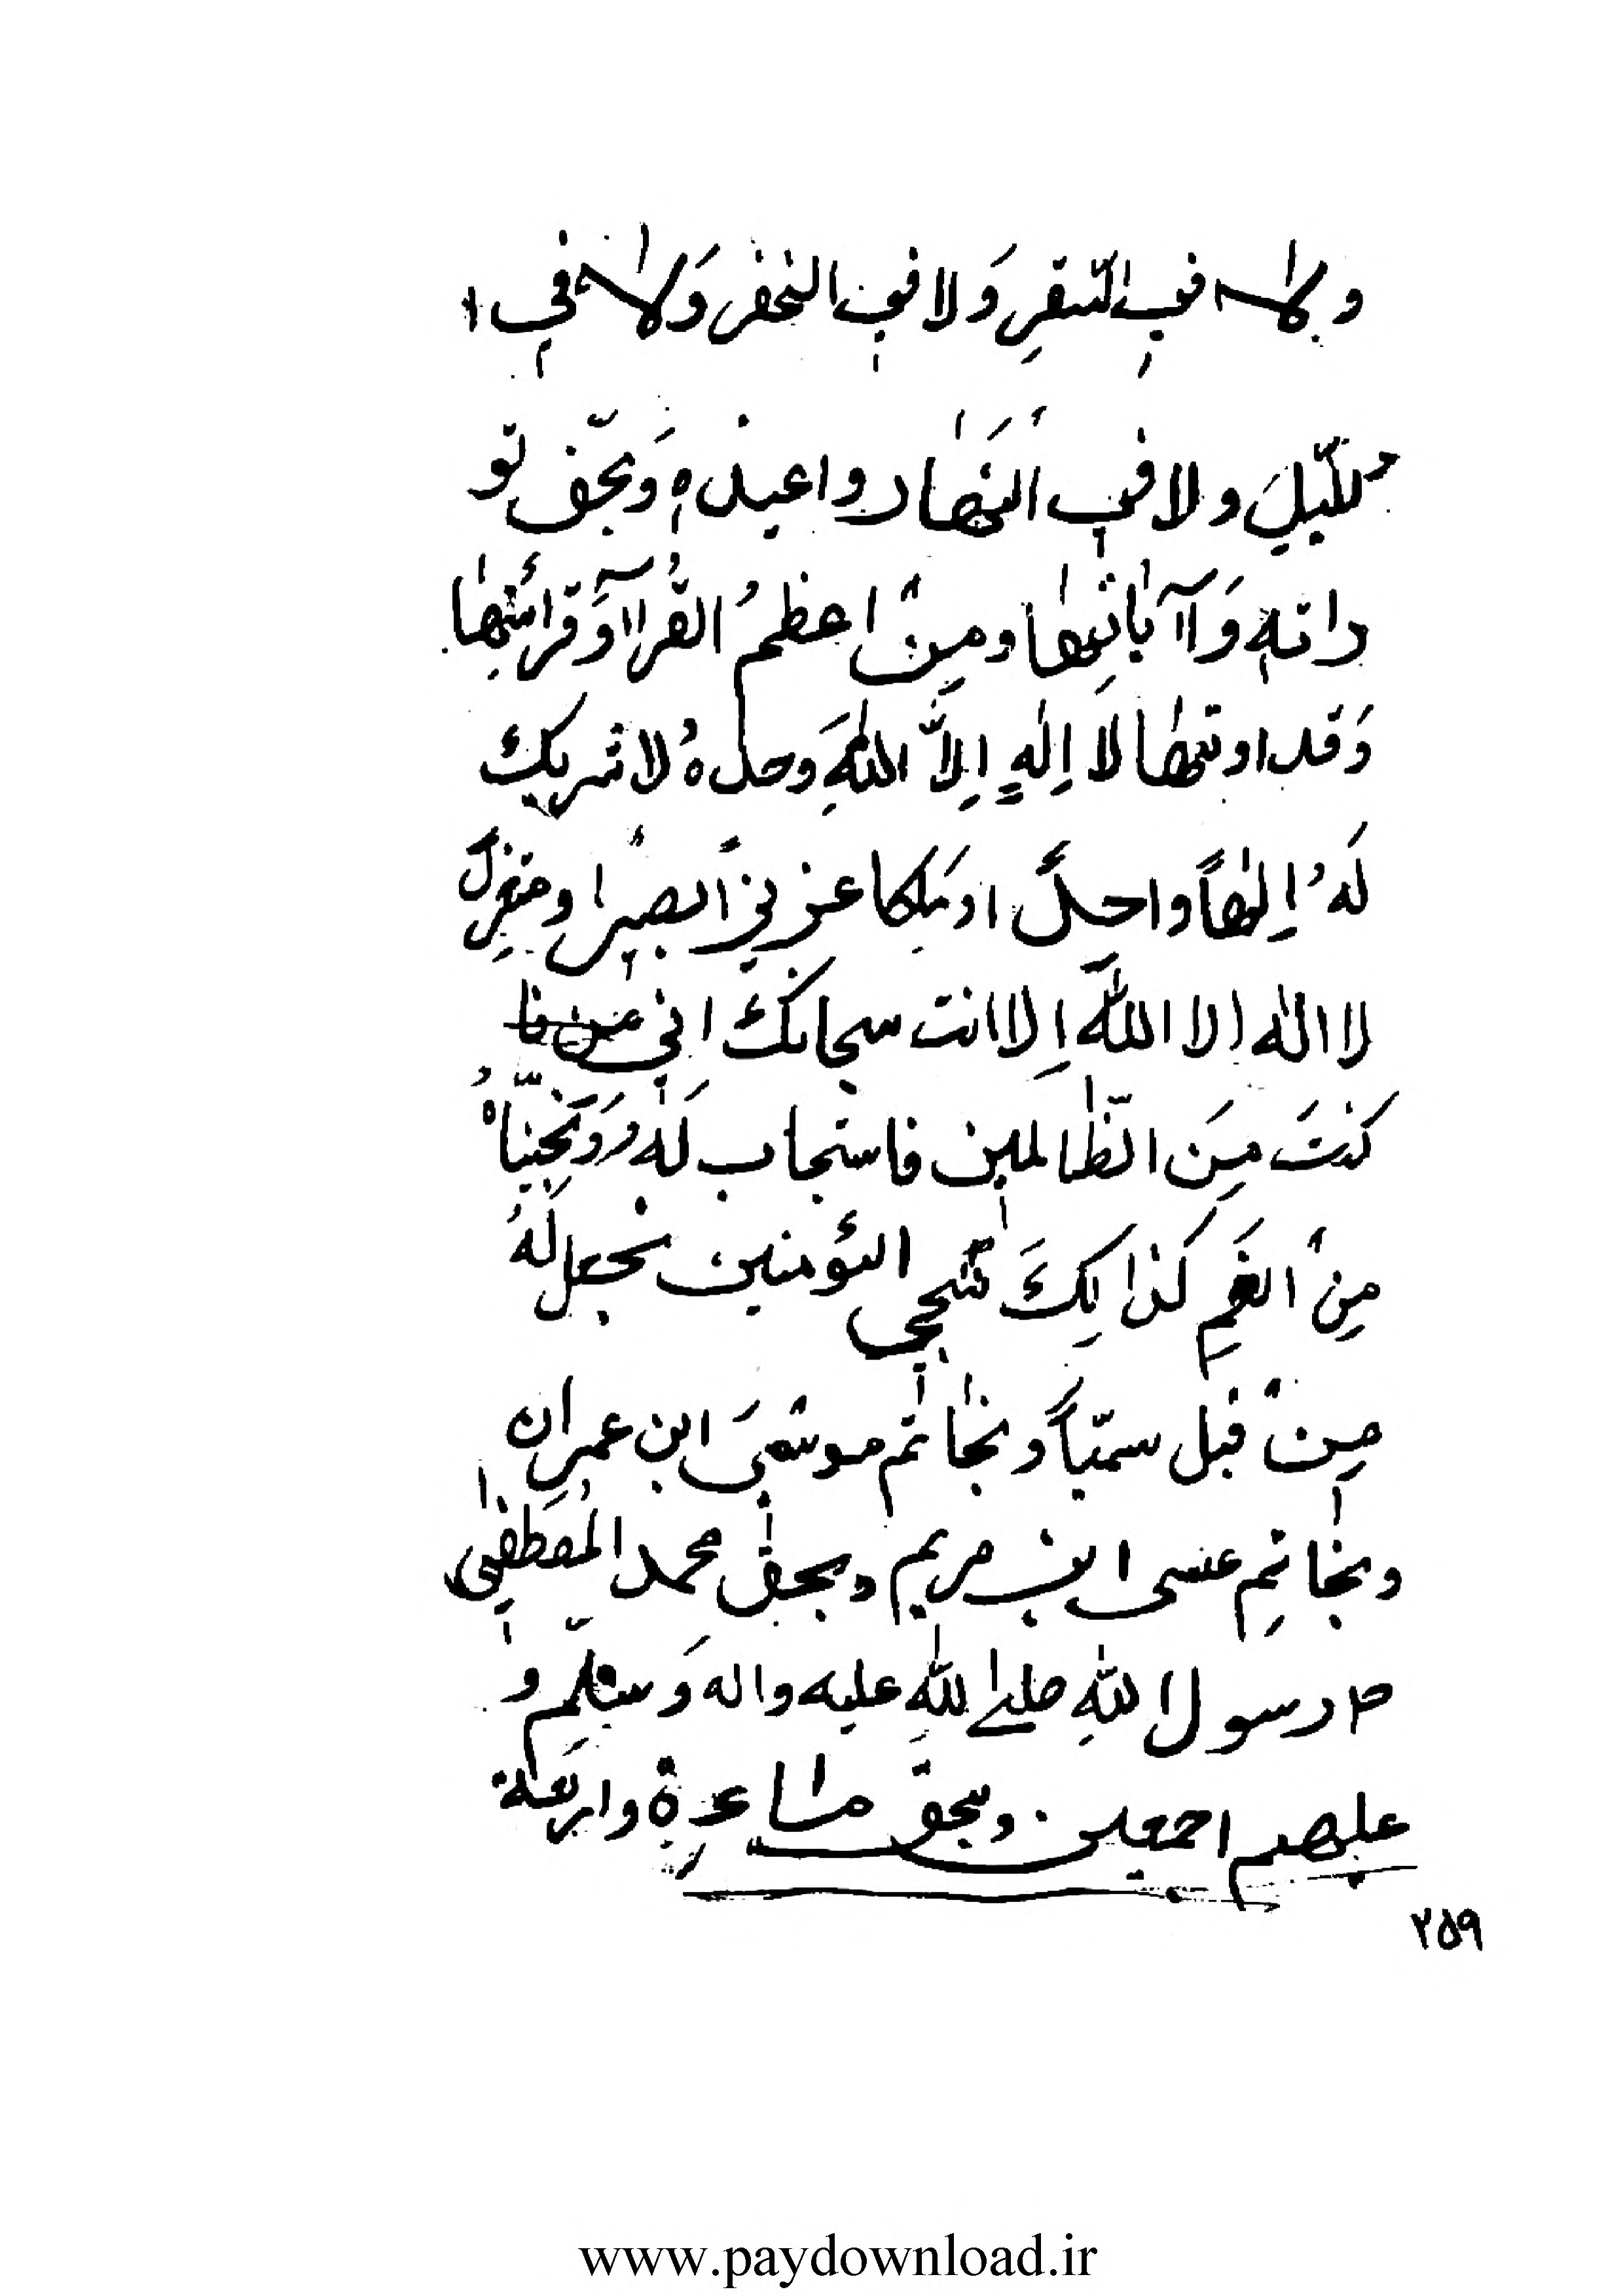 ولا في السّقرِ وَلا في الحضر وَلا في ا
للّیلَ ولا في النهٰار واعیذه وَبحّق تو
راته وَآ یٰاتِهٰا ومِنْ اعظمُ القُرآ وَقرائتهٰا
وَقد اوتیها لا اِلٰهٍ اِلاَّ اللّٰهَ وحدهُ لا شریك
لَهُ اِلٰهاً واحدً او ملکا عزیزاً بصیرا و
لا اله الا اللّه اِلا انت سبحانك اني
کنتَ مِنَ الظّٰالمین فاستجاب لَهُ وَنَجّینٰاهُ
مِنْ الغَمِ کَذالِكَ ننجی المؤمنین نجعل لَهُ
مِنْ قبل سمیّاً وبخٰاتم موسیٰ ابن عمران
وبخٰاتِم عیسی ابن مریم وبحق محمد المُصَطفیٰ
رسول اللّهِ صلی اللّهِ علیه واله وَسلّم و
علیهم اجمعین وبحق واربعة
۲۵۹
www.paydownload.ir